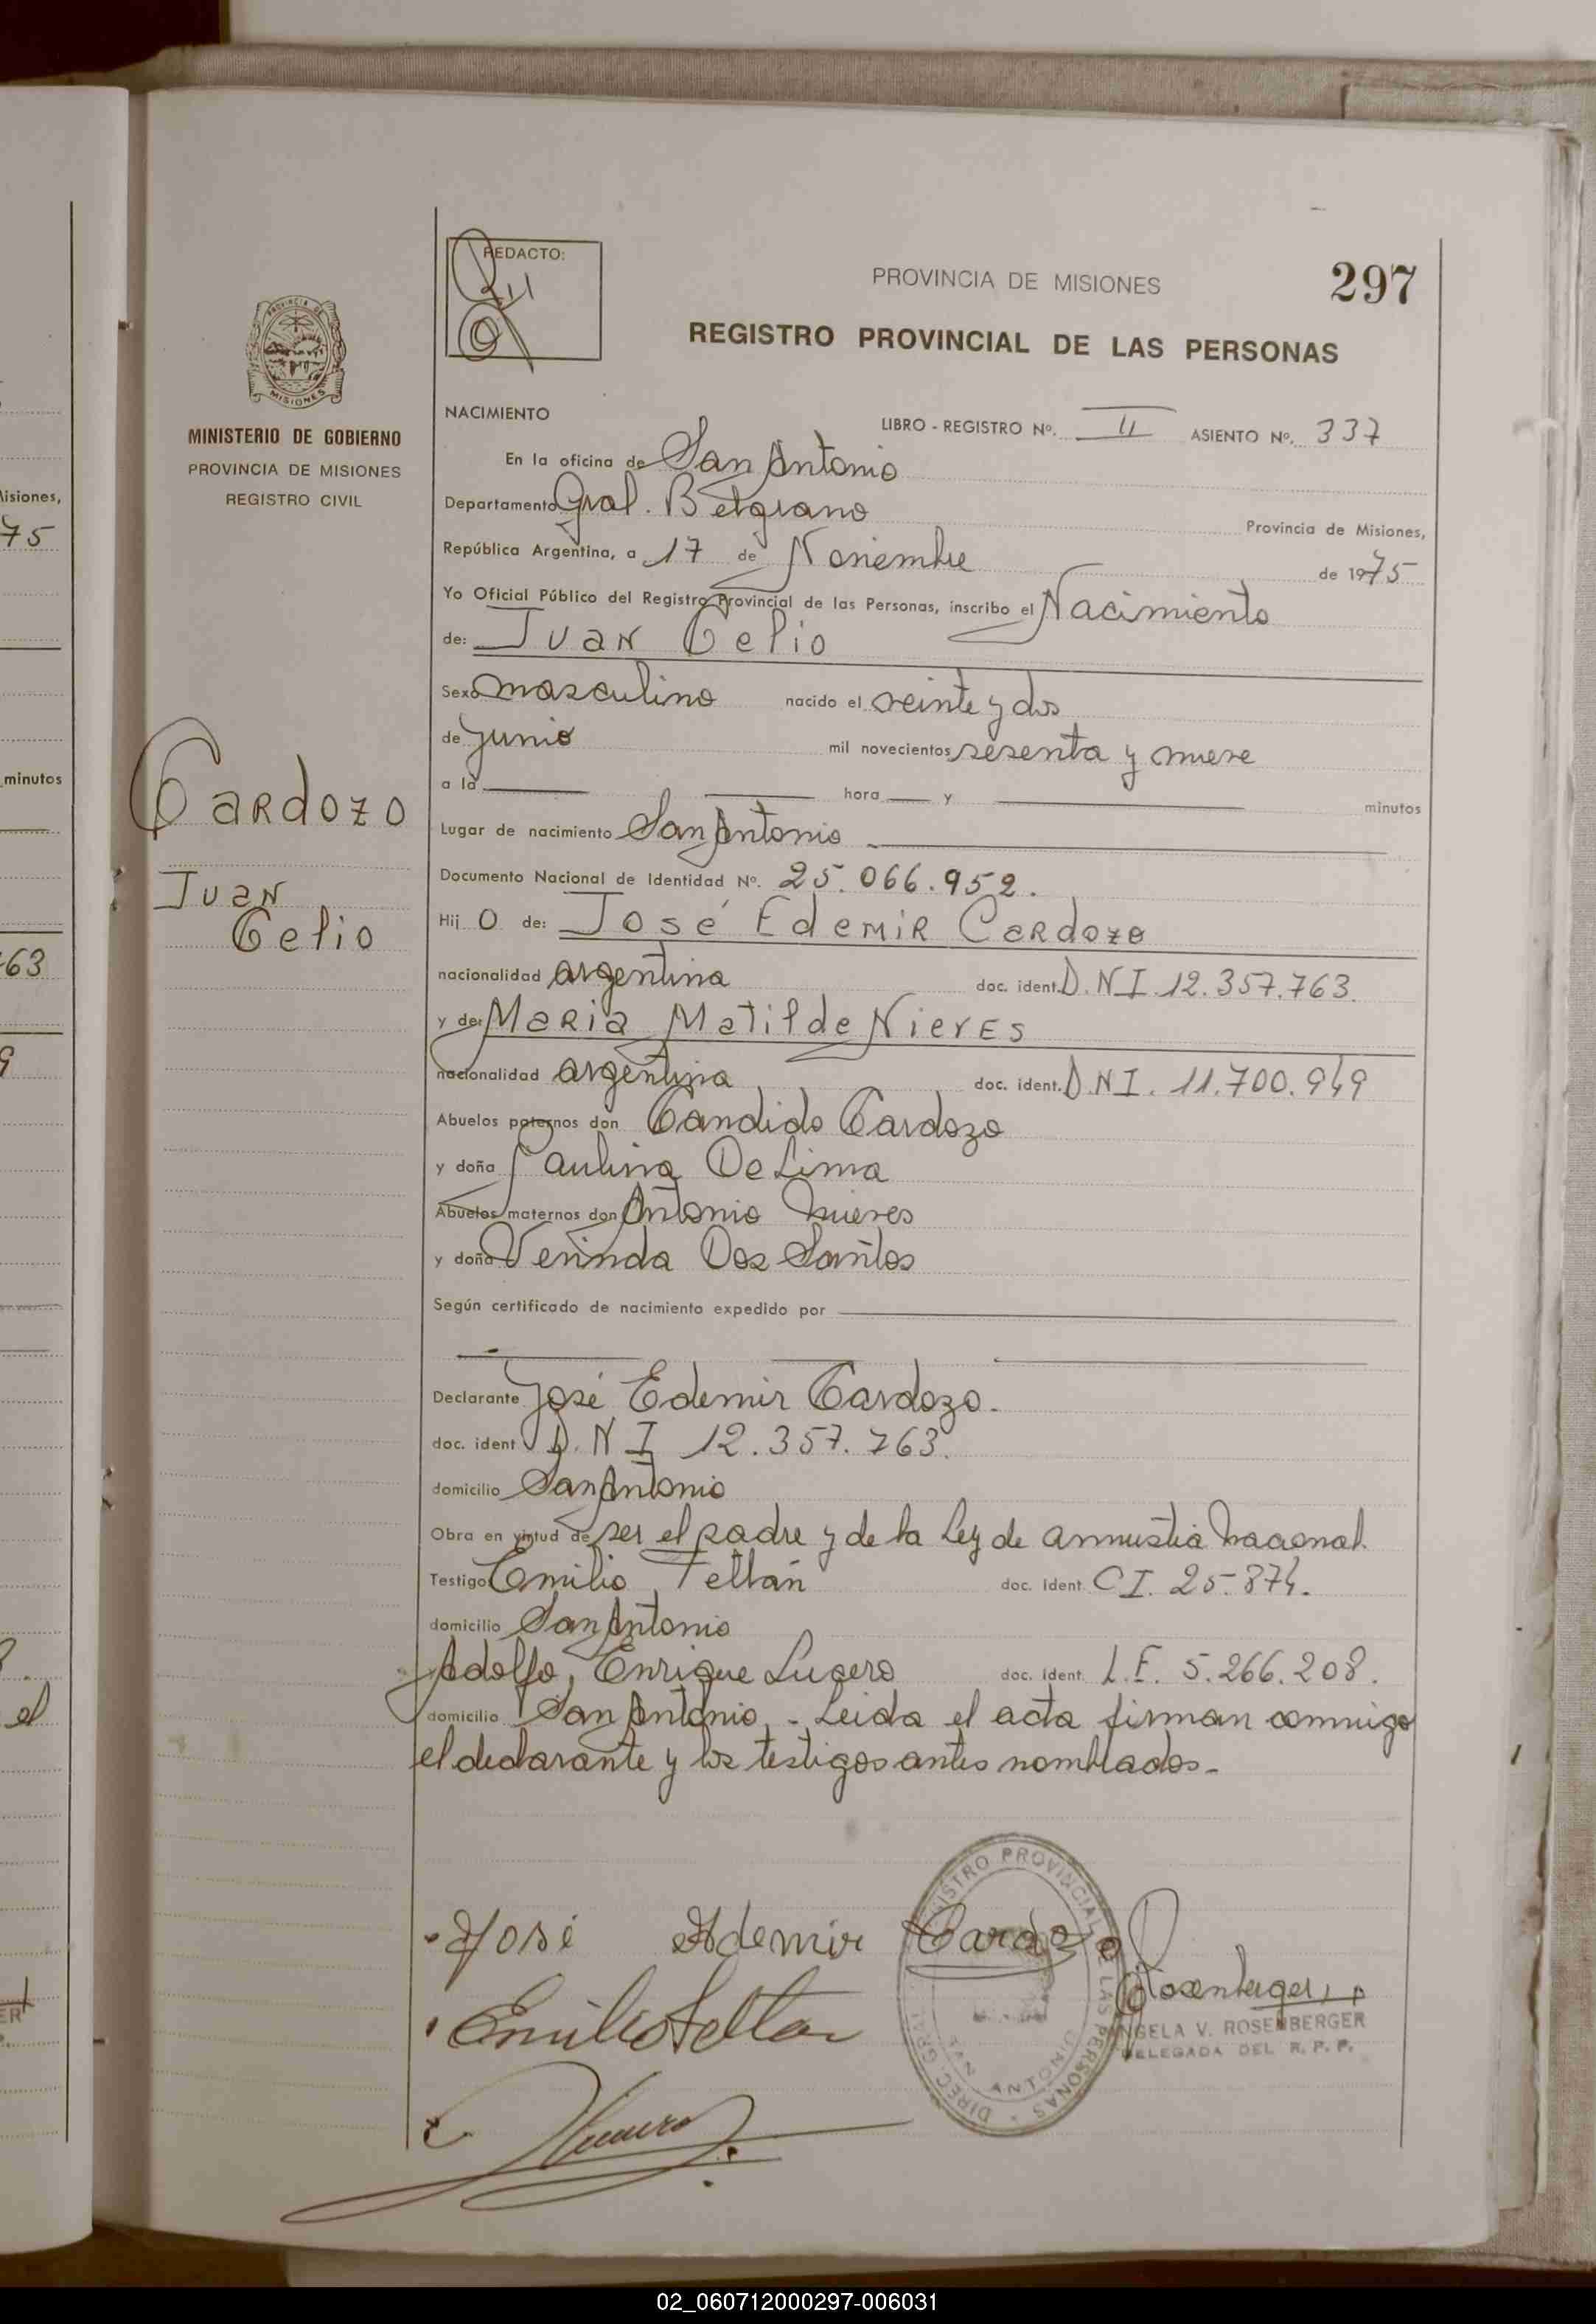 REDACTO:
PROVINCIA DE MISIONES
297
REGISTRO PROVINCIAL DE LAS PERSONAS
PROVINCIA DE
MISIONES
MINISTERIO DE GOBIERNO
PROVINCIA DE MISIONES
REGISTRO CIVIL
NACIMIENTO
LIBRO - REGISTRO Nº. II ASIENTO Nº. 337
En la oficina de San Antonio
Departamento Gral. Belgrano
Provincia de Misiones,
República Argentina, a 17 de Noviembre de 1975
Yo Oficial Público del Registro Provincial de las Personas, inscribo el Nacimiento
de: Juan Celio
Sexo masculino nacido el veinte y dos
de junio mil novecientos sesenta y nueve
a la hora y minutos
Cardozo
Juan
Celio
Lugar de nacimiento San Antonio
Documento Nacional de Identidad Nº. 25.066.952.
Hij o de: José Edemir Cardozo
nacionalidad argentina doc. ident. D.N.I. 12.357.763.
y de: Maria Matilde Nieves
nacionalidad argentina doc. ident. D.N.I. 11.700.949
Abuelos paternos don Candido Cardozo
y doña Paulina De Lima
Abuelos maternos don Antonio Nieves
y doña Verinda Dos Santos
Según certificado de nacimiento expedido por
Declarante José Edemir Cardozo.
doc. ident D.N I 12.357.763.
domicilio San Antonio
Obra en virtud de ser el padre y de la Ley de amnistia Nacional.
Testigos Emilio Feltán doc. Ident. C I. 25.874.
domicilio San Antonio
Adolfo Enrique Lucero doc. Ident. L.E. 5.266.208.
domicilio San Antonio. - Leida el acta firman conmigo
el declarante y los testigos antes nombrados.-
José Ademir Cardozo
Emilio Feltan
Rosenberger
ANGELA V. ROSENBERGER
DELEGADA DEL R. P. P.
DIREC. GRAL. REGISTRO PROVINCIAL DE LAS PERSONAS
SAN ANTONIO
Misiones,
75
minutos
763
9
el
02_060712000297-006031